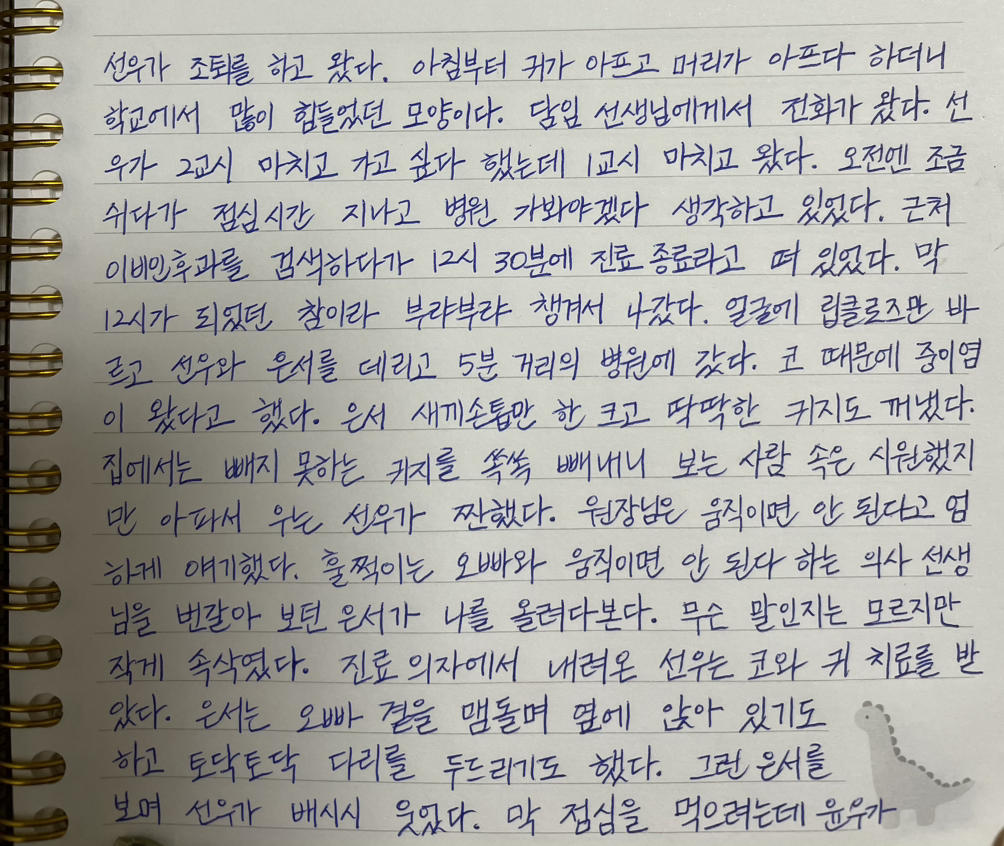 선우가 조퇴를 하고 왔다. 아침부터 귀가 아프고 머리가 아프다 하더니
학교에서 많이 힘들었던 모양이다. 담임 선생님에게서 전화가 왔다. 선
우가 2교시 마치고 가고 싶다 했는데 1교시 마치고 왔다. 오전엔 조금
쉬다가 점심시간 지나고 병원 가봐야겠다 생각하고 있었다. 근처
이비인후과를 검색하다가 12시 30분에 진료 종료라고 떠 있었다. 막
12시가 되었던 참이라 부랴부랴 챙겨서 나갔다. 얼굴에 립클로즈만 바
르고 선우와 은서를 데리고 5분 거리의 병원에 갔다. 코 때문에 중이염
이 왔다고 했다. 은서 새끼손톱만 한 크고 딱딱한 귀지도 꺼냈다.
집에서는 빼지 못하는 귀지를 쏙쏙 빼내니 보는 사람 속은 시원했지
만 아파서 우는 선우가 짠했다. 원장님은 움직이면 안 된다고 엄
하게 얘기했다. 훌쩍이는 오빠와 움직이면 안 된다 하는 의사 선생
님을 번갈아 보던 은서가 나를 올려다본다. 무슨 말인지는 모르지만
작게 속삭였다. 진료 의자에서 내려온 선우는 코와 귀 치료를 받
았다. 은서는 오빠 곁을 맴돌며 옆에 앉아 있기도
하고 토닥토닥 다리를 두드리기도 했다. 그런 은서를
보며 선우가 배시시 웃었다. 막 점심을 먹으려는데 윤우가